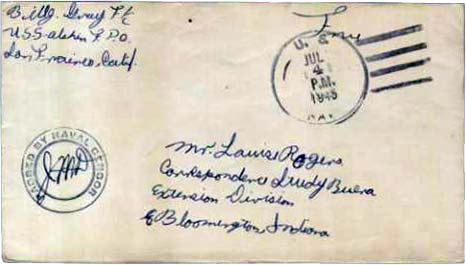 Billy Gray
U.S.S.
San Francisco, Calif.
Free
U. S.
JUL
4
P.M.
1945
NAV
PASSED BY NAVAL CENSOR
Mr. Louise Rogers
Correspondence Study Buera
Extension Division
Bloomington, Indiana